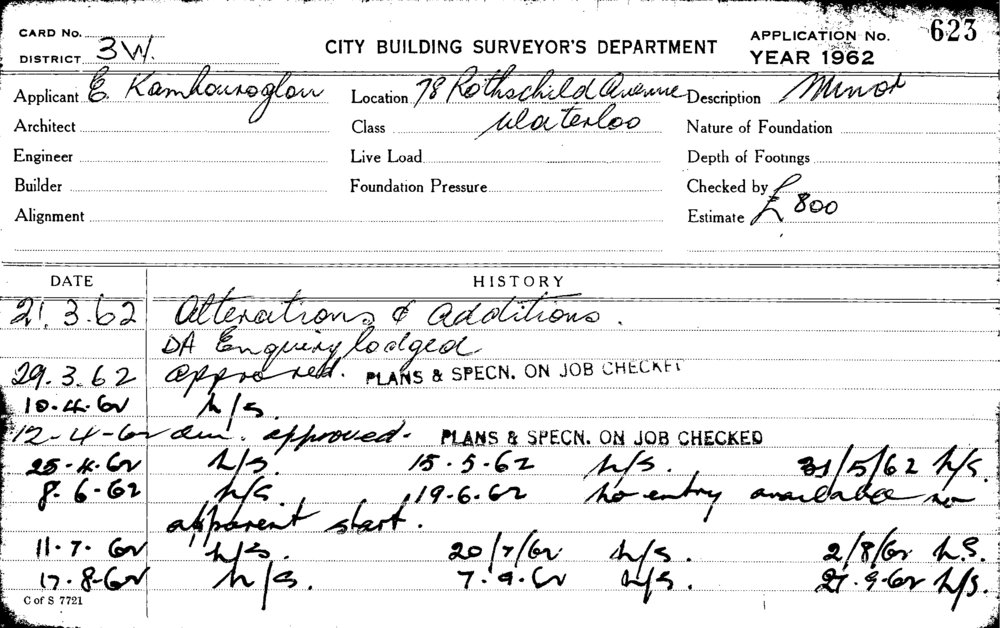 CARD No.
DISTRICT 3W.
CITY BUILDING SURVEYOR'S DEPARTMENT
APPLICATION No. 623
YEAR 1962
Applicant E. Kambouroglou Location 78 Rothschild Avenue Description Minor
Architect Class Waterloo Nature of Foundation
Engineer Live Load Depth of Footings
Builder Foundation Pressure Checked by
Alignment Estimate £ 800
DATE HISTORY
21.3.62 Alterations & additions.
DA Enquiry lodged
29.3.62 approved. PLANS & SPECN. ON JOB CHECKED
10.4.62 n/s.
12-4-62 dem. approved. PLANS & SPECN. ON JOB CHECKED
25.4.62 n/s. 15.5.62 n/s. 31/5/62 n/s.
8.6.62 n/s. 19.6.62 no entry available no
apparent start.
11.7.62 n/s. 20/7/62 n/s. 2/8/62 n.s.
17.8.62 n/s. 7.9.62 n/s. 21.9.62 n/s.
C of S 7721